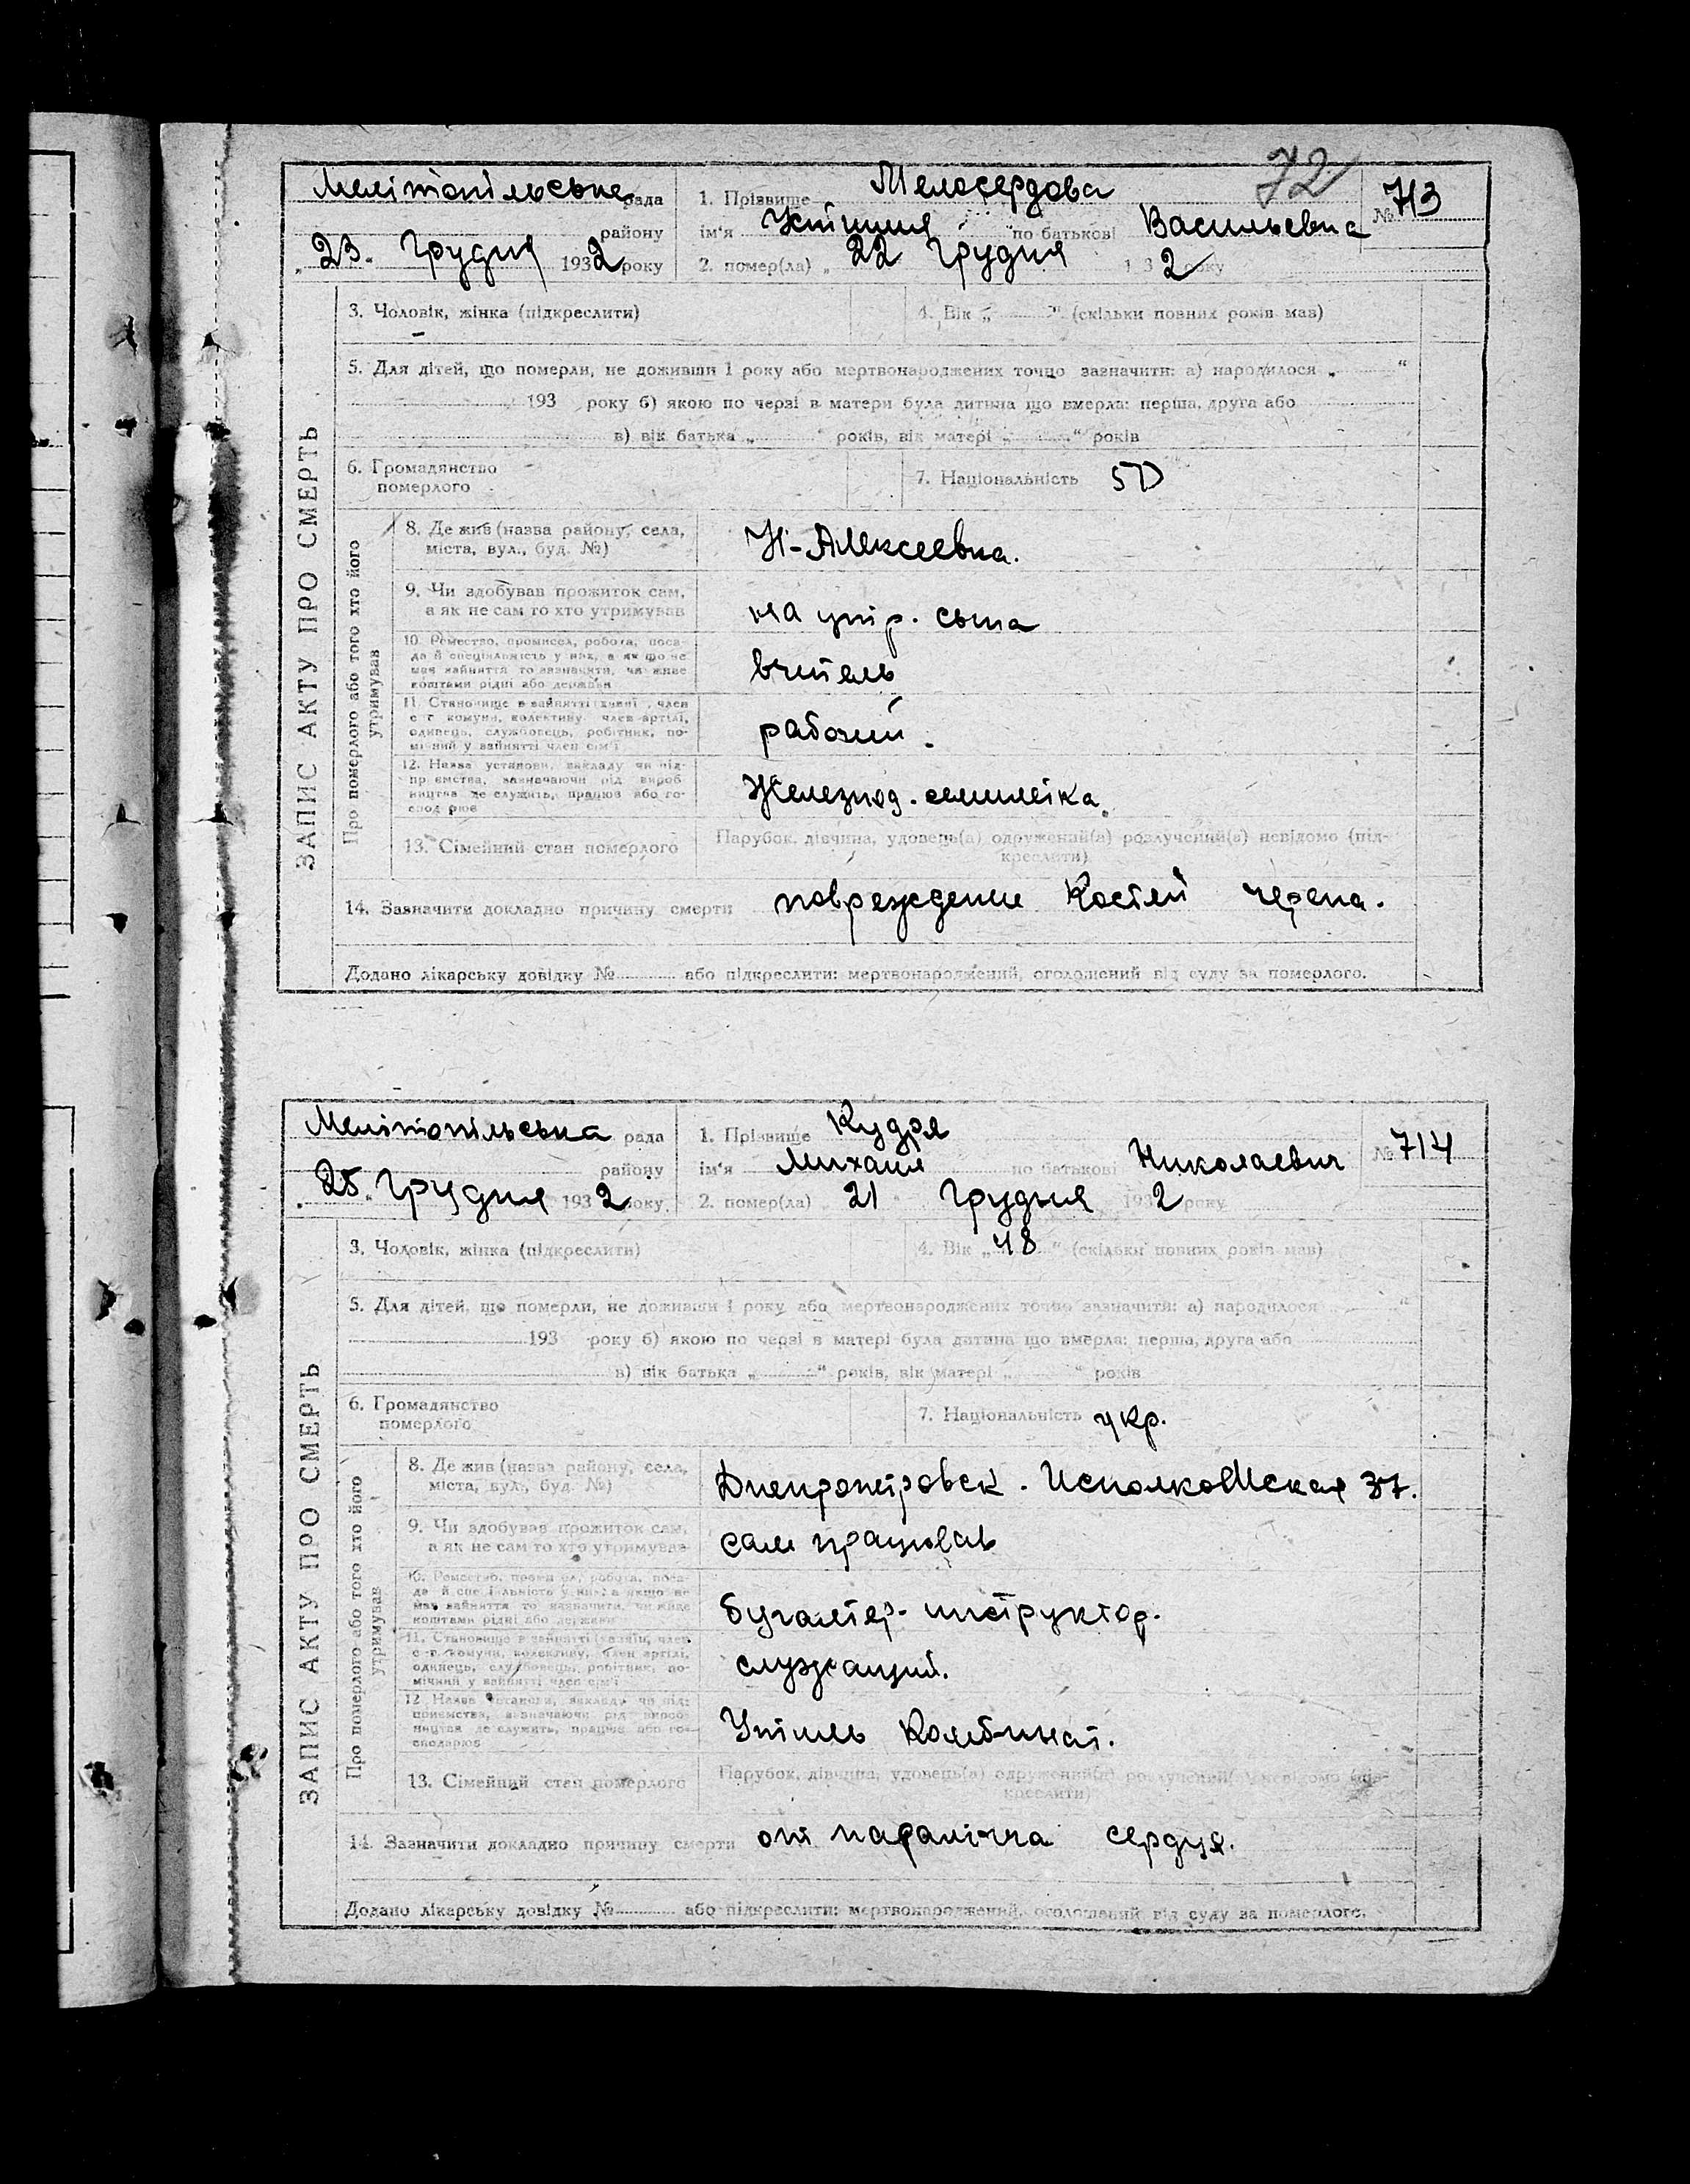 72
Мелітопільська рада
1. Прізвище Мелосердова
№ 713
району
ім'я Устиния по батькові Васильевна
„23" Грудня 1932 року
2. помер(ла) „22 Грудня 1932 року
ЗАПИС АКТУ ПРО СМЕРТЬ
3. Чоловік, жінка (підкреслити)
4. Вік „ " (скільки повних років мав)
5. Для дітей, що померли, не доживши 1 року або мертвонароджених точно зазначити: а) народилося „ "
193 року б) якою по черзі в матери була дитина що вмерла: перша, друга або
в) вік батька „ " років, вік матері „ " років
6. Громадянство
померлого
7. Національність 50
Про померлого або того хто його
утримував
8. Де жив (назва району, села,
міста, вул., буд. №)
Н-Алексеевка.
9. Чи здобував прожиток сам,
а як не сам то хто утримував
на утр. сына
10. Ремество, промисел, робота, поса-
да й спеціяльність у них, а як що не
мав зайняття то зазначити, чи живе
коштами рідні або держави
вчитель
11. Становище в зайнятті (хазяїн, член
с-г комуни, колективу, член артілі,
одинець, службовець, робітник, по-
мічний у зайнятті член сім'ї
рабочий.
12. Назва установи, закладу чи під-
приємства, зазначаючи рід вироб-
ництва де служить, працює або го-
сподарює
Железнод. семилетка.
13. Сімейний стан померлого
Парубок, дівчина, удовець(а) одружений(а) розлучений(а) невідомо (під-
креслити)
14. Зазначити докладно причину смерти повреждение костей черепа.
Додано лікарську довідку № або підкреслити: мертвонароджений, оголошений від суду за померлого.
Мелітопільська рада
1. Прізвище Кудря
№ 714
району
ім'я Михаил по батькові Николаевич
„25" Грудня 1932 року
2. помер(ла) 21 Грудня 1932 року
ЗАПИС АКТУ ПРО СМЕРТЬ
3. Чоловік, жінка (підкреслити)
4. Вік „48" (скільки повних років мав)
5. Для дітей, що померли, не доживши 1 року або мертвонароджених точно зазначити: а) народилося „ "
193 року б) якою по черзі в матері була дитина що вмерла: перша, друга або
в) вік батька „ " років, вік матері „ " років
6. Громадянство
померлого
7. Національність укр.
Про померлого або того хто його
утримував
8. Де жив (назва району, села,
міста, вул., буд. №)
Днепропетровск. Исполкомская 37.
9. Чи здобував прожиток сам,
а як не сам то хто утримував
сам працював
10. Ремество, промисел, робота, поса-
да й спеціяльність у них, а якщо не
мав зайняття то зазначити, чи живе
коштами рідні або держави
бугалтер-инструктор.
11. Становище в зайнятті (хазяїн, член
с-г. комуни, колективу, член артілі,
одинець, службовець, робітник, по-
мічний у зайнятті член сім'ї
служащий.
12. Назва установи, закладу чи під-
приємства, зазначаючи рід вироб-
ництва де служить, працює або го-
сподарює
Утиль Комбинат.
13. Сімейний стан померлого
Парубок, дівчина, удовець(а) одружений(а) розлучений(а) невідомо (під-
креслити)
14. Зазначити докладно причину смерти от параліча сердця.
Додано лікарську довідку № або підкреслити: мертвонароджений, оголошений від суду за померлого.